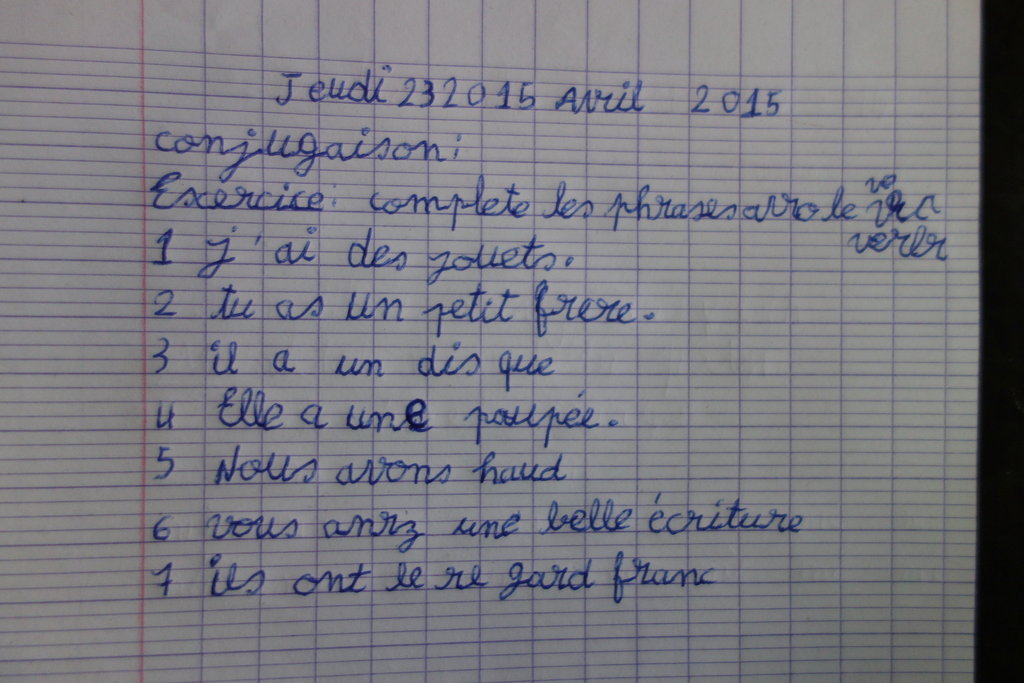 Jeudi 23 2015 Avril 2015
conjugaison:
Exercice: complete les phrases avvole
verbr
1 j'ai des jouets.
2 tu as un petit frere.
3 il a un dis que
4 Elle a une poupée.
5 Nous avons haud
6 vous avrz une belle écriture
7 ils ont le re gard franc